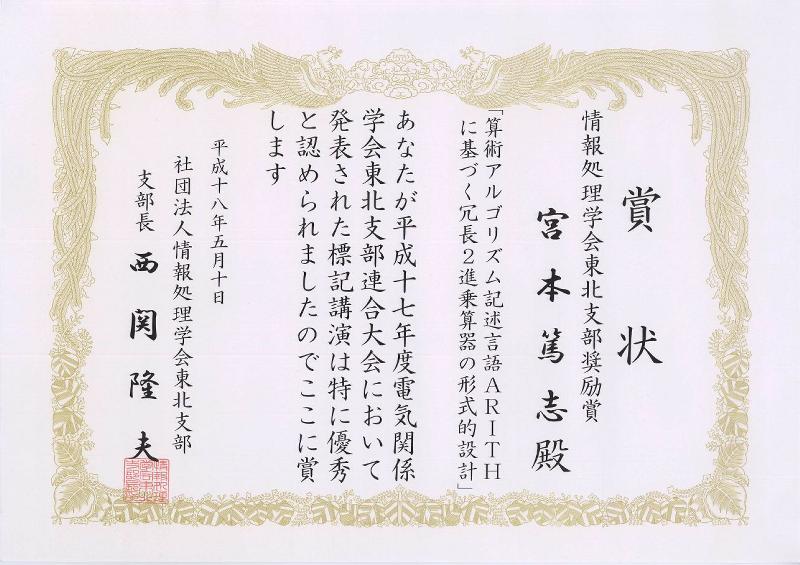 賞状
情報処理学会東北支部奨励賞
宮本篤志殿
「算術アルゴリズム記述言語ARITH
に基づく冗長2進乗算器の形式的設計」
あなたが平成十七年度電気関係
学会東北支部連合大会において
発表された標記講演は特に優秀
と認められましたのでここに賞
します
平成十八年五月十日
社団法人情報処理学会東北支部
支部長 西関隆夫